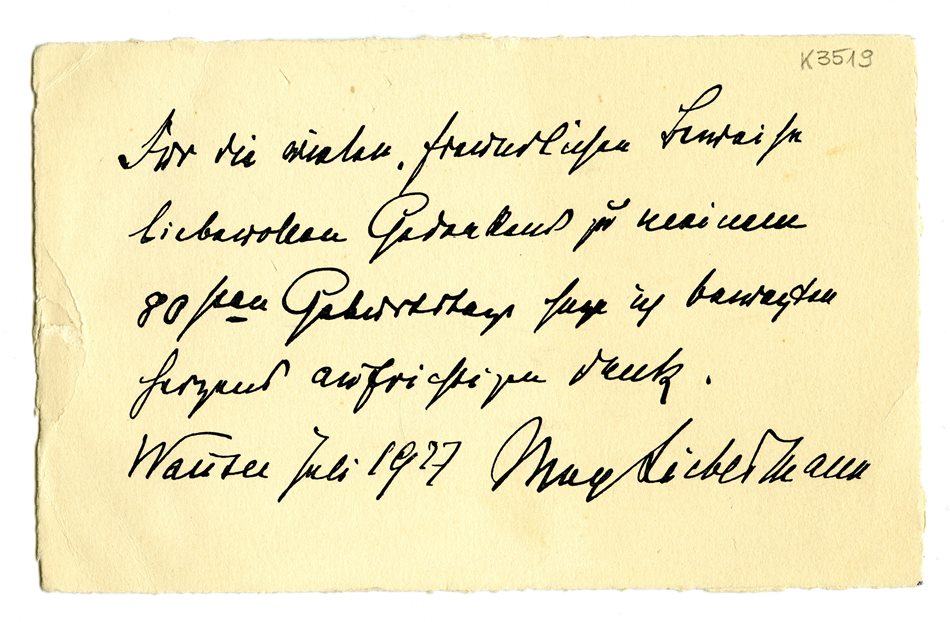 K3519
Für die vielen, freundlichen Beweise
liebevollen Gedenkens zu meinem
80sten Geburtstage sage ich bewegten
Herzens aufrichtigen Dank.
Wannsee Juli 1927 Max Liebermann